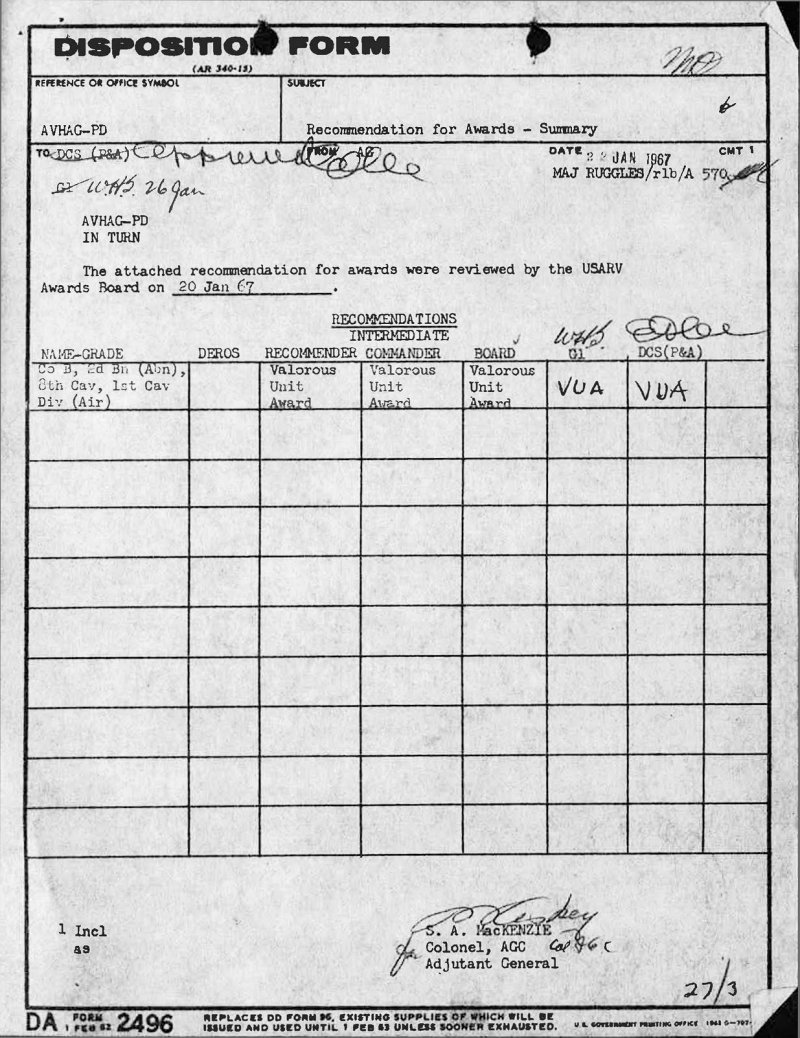 DISPOSITION FORM
(AR 340-15)
REFERENCE OR OFFICE SYMBOL
SUBJECT
AVHAG-PD
Recommendation for Awards - Summary
TO DCS (P&A) approved FROM AG DATE 22 JAN 1967 CMT 1
MAJ RUGGLES/rlb/A 570
G1 WHS. 26 Jan
AVHAG-PD
IN TURN
The attached recommendation for awards were reviewed by the USARV
Awards Board on 20 Jan 67.
RECOMMENDATIONS
INTERMEDIATE
NAME-GRADE DEROS RECOMMENDER COMMANDER BOARD G1 DCS(P&A)
Co B, 2d Bn (Abn), Valorous Valorous Valorous
8th Cav, 1st Cav Unit Unit Unit VUA VUA
Div (Air) Award Award Award
1 Incl
as
S. A. MacKENZIE
Colonel, AGC
Adjutant General
27/3
DA FORM 2496
1 FEB 62
REPLACES DD FORM 96, EXISTING SUPPLIES OF WHICH WILL BE
ISSUED AND USED UNTIL 1 FEB 63 UNLESS SOONER EXHAUSTED.
U.S. GOVERNMENT PRINTING OFFICE